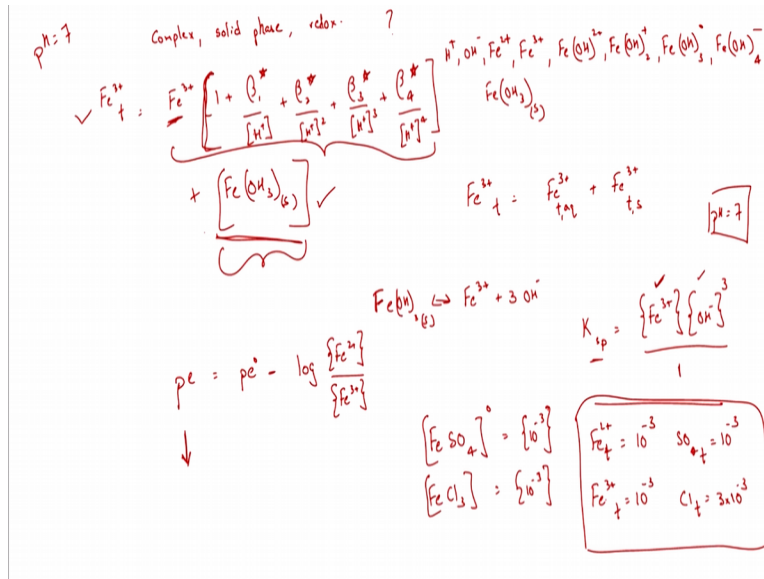 pH=7
Complex, solid phase, redox. ?
H⁺, OH⁻, Fe²⁺, Fe³⁺, Fe(OH)²⁺, Fe(OH)₂⁺, Fe(OH)₃°, Fe(OH)₄⁻
Fe(OH₃)₍s₎
✓ Fe³⁺ₜ = Fe³⁺ [1 + β₁*/[H⁺] + β₂*/[H⁺]² + β₃*/[H⁺]³ + β₄*/[H⁺]⁴]
+ [Fe(OH₃)₍s₎] ✓
Fe³⁺ₜ = Fe³⁺ t,aq + Fe³⁺ t,s
pH=7
Fe(OH)₃₍s₎ ⇔ Fe³⁺ + 3 OH⁻
Ksp = {Fe³⁺}{OH⁻}³ / 1
pe = pe° - log {Fe²⁺}/{Fe³⁺}
↓
[FeSO₄]° = {10⁻³}
[FeCl₃] = {10⁻³}
Fe²⁺ₜ = 10⁻³ SO₄ₜ = 10⁻³
Fe³⁺ₜ = 10⁻³ Clₜ = 3x10⁻³